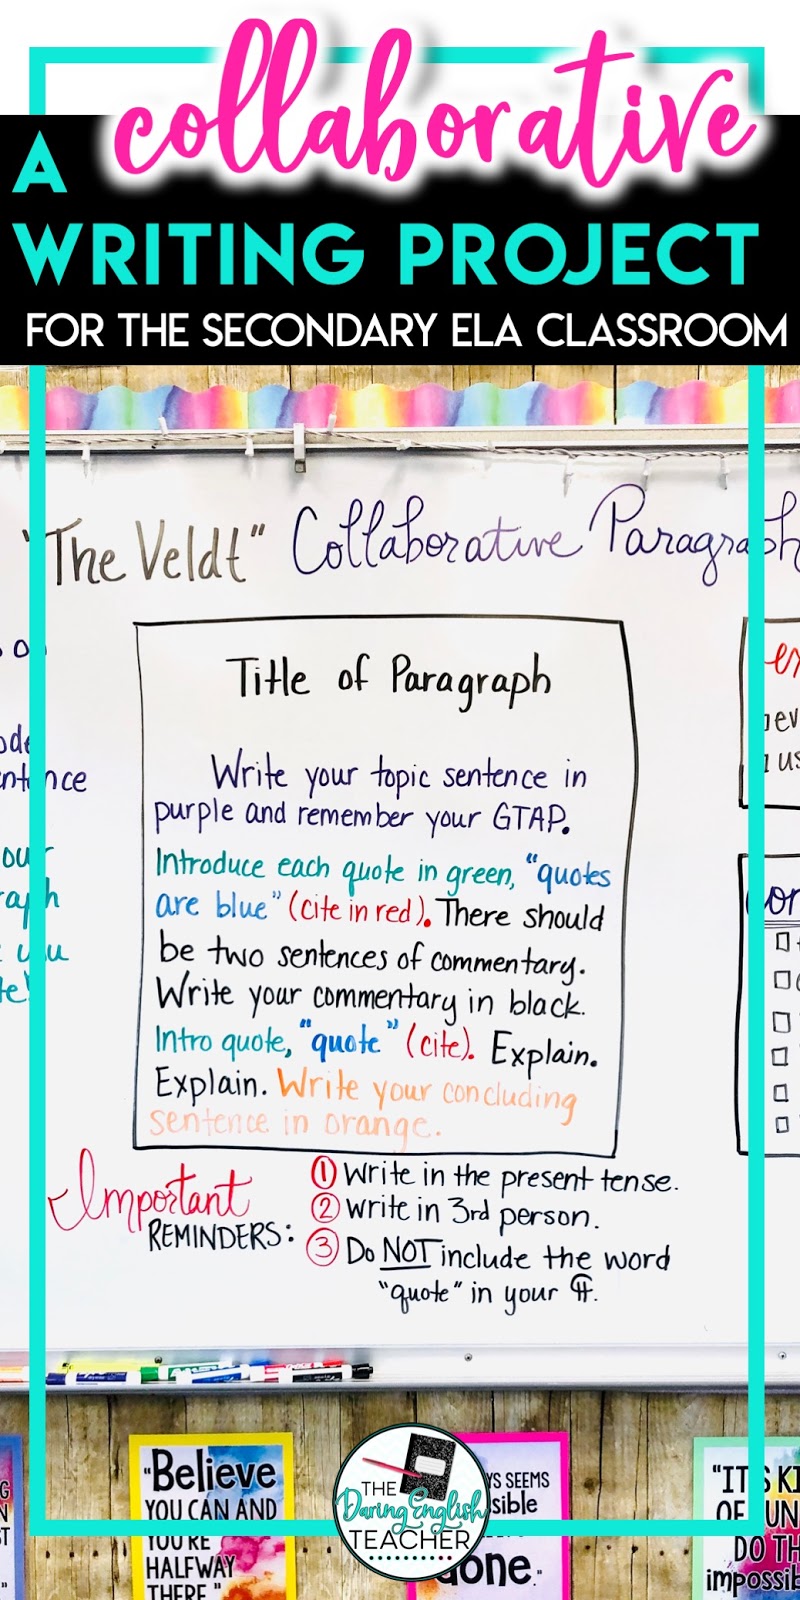 collaborative
A
WRITING PROJECT
FOR THE SECONDARY ELA CLASSROOM
"The Veldt" Collaborative Paragraph
Title of Paragraph
Write your topic sentence in
purple and remember your GTAP.
Introduce each quote in green, "quotes
are blue" (cite in red). There should
be two sentences of commentary.
Write your commentary in black.
Intro quote, "quote" (cite). Explain.
Explain. Write your concluding
sentence in orange.
Important
REMINDERS:
① Write in the present tense.
② Write in 3rd person.
③ Do NOT include the word
"quote" in your ¶.
"Believe
YOU CAN AND
YOU'RE
HALFWAY
THERE."
THE
Daring English
TEACHER
SEEMS
done."
"IT'S
OF
DO